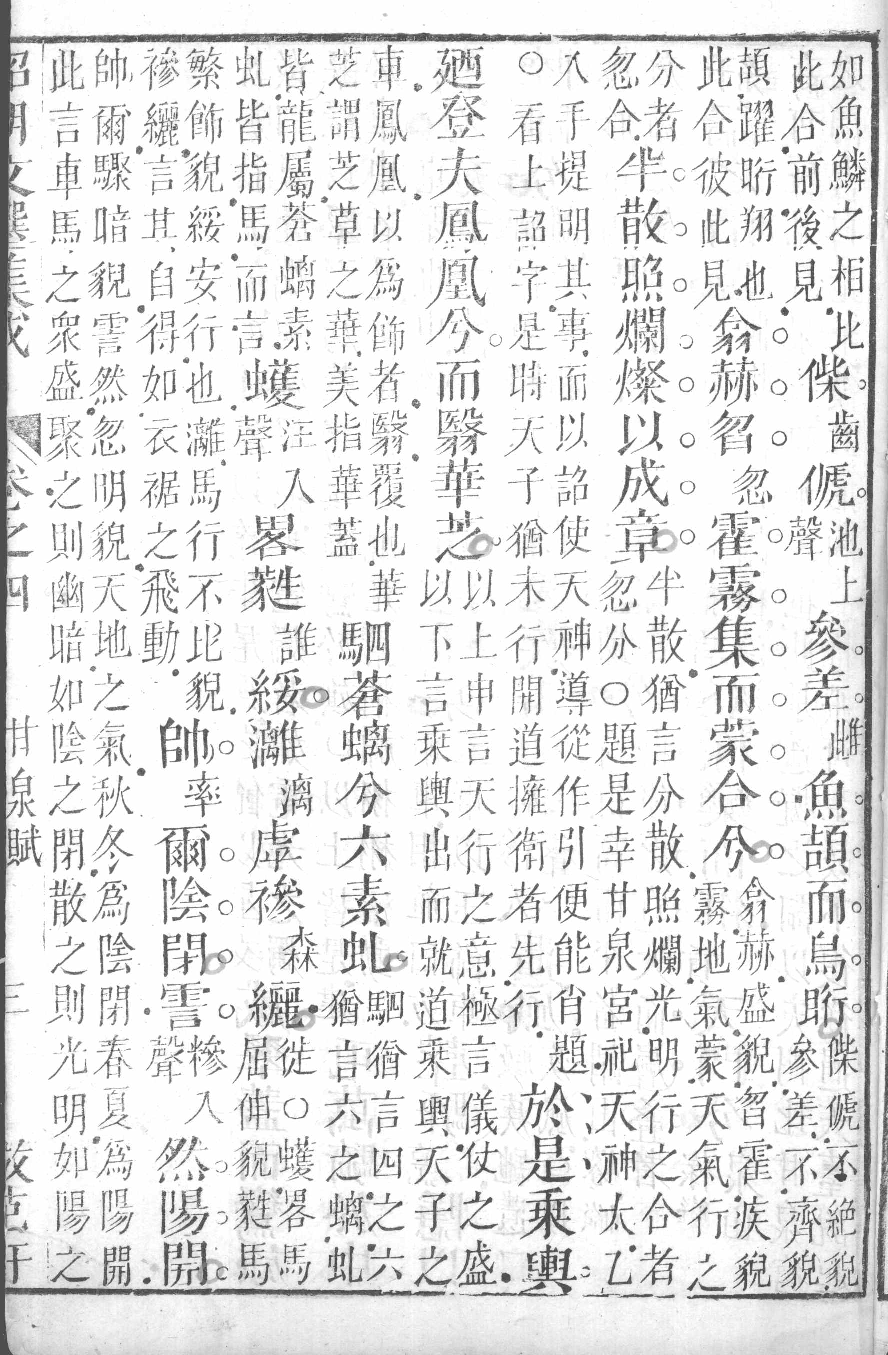 如魚鱗之相比此合前後見偨齒傂池上聲參差雌魚頡而鳥䀪偨傂不絶貌參差不齊貌
頡躍䀪翔也此合彼此見翕赫曶忽霍霧集而蒙合兮翕赫盛貌曶霍疾貌霧地氣蒙天氣行之
分者忽合半散照爛燦以成章半散猶言分散照爛光明行之合者忽分○題是幸甘泉宮祀天神太乙
入手提明其事而以詔使天神導從作引便能肖題○看上詔字是時天子猶未行開道擁衛者先行於是乘輿
廼登夫鳳凰兮而翳華芝以上申言天行之意極言儀仗之盛以下言乘輿出而就道乘輿天子之
車鳳凰以爲飾者翳覆也華芝謂芝草之華美指華蓋駟蒼螭兮六素虬駟猶言四之六猶言六之螭虬
皆龍屬蒼螭素虬皆指馬而言蠖汪入聲畧蕤誰綏灕漓虖襂森纚徙○蠖畧馬屈伸貌蕤馬
繁飾貌綏安行也灕馬行不比貌襂纚言其自得如衣裾之飛動帥率爾陰閉霅糝入聲然陽開
帥爾驟暗貌霅然忽明貌天地之氣秋冬爲陰閉春夏爲陽開此言車馬之衆盛聚之則幽暗如陰之閉散之則光明如陽之
昭明文選集成 卷之四 甘泉賦 三